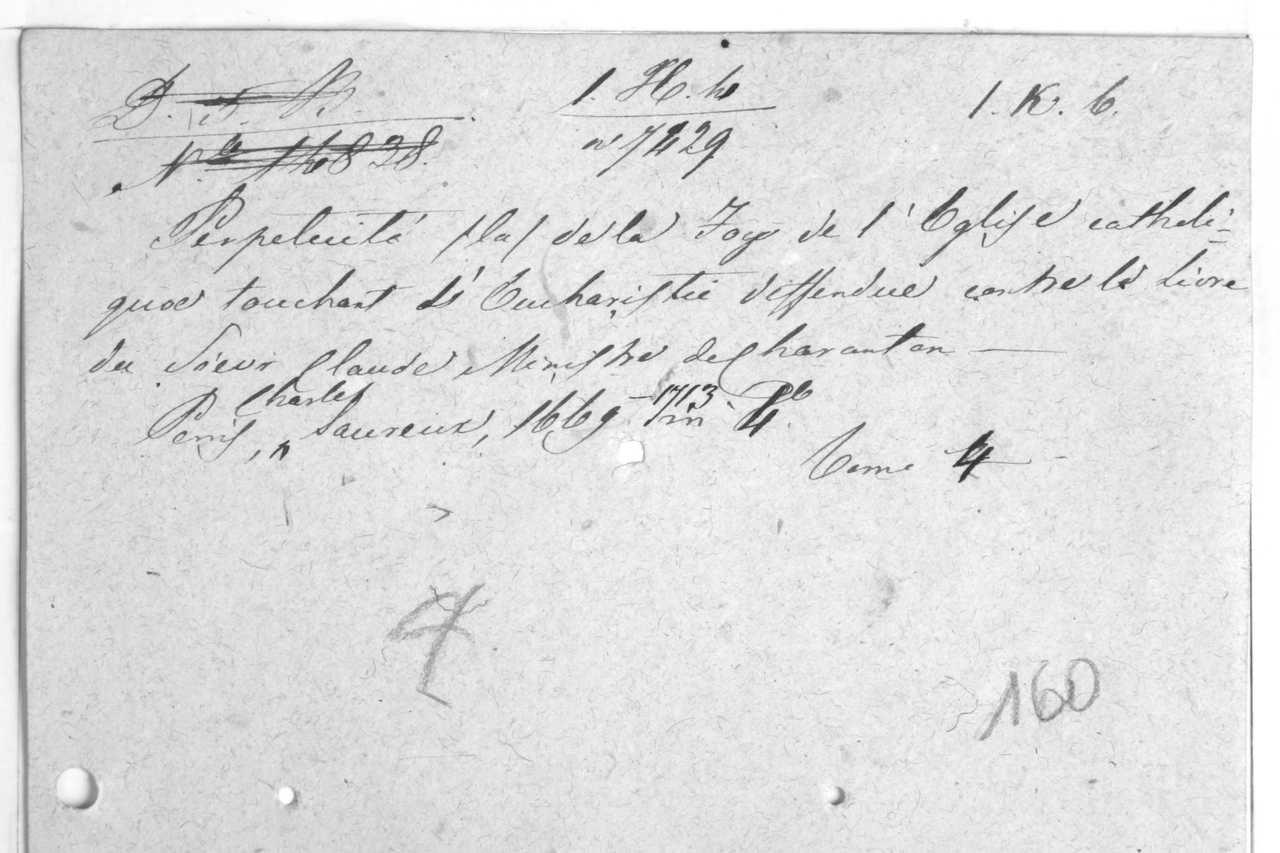 D. T. B. 1. H. h 1. K. 6.
No 14828. n 7429
Perpetuité (la) de la Foy de l'Eglise catholi-
que touchant l'Eucharistie deffendue contre le livre
du Sieur Claude Ministre de Charanton —
Paris, Charles Saureux, 1669 - 1713 in 4o.
Tome 4
4
160